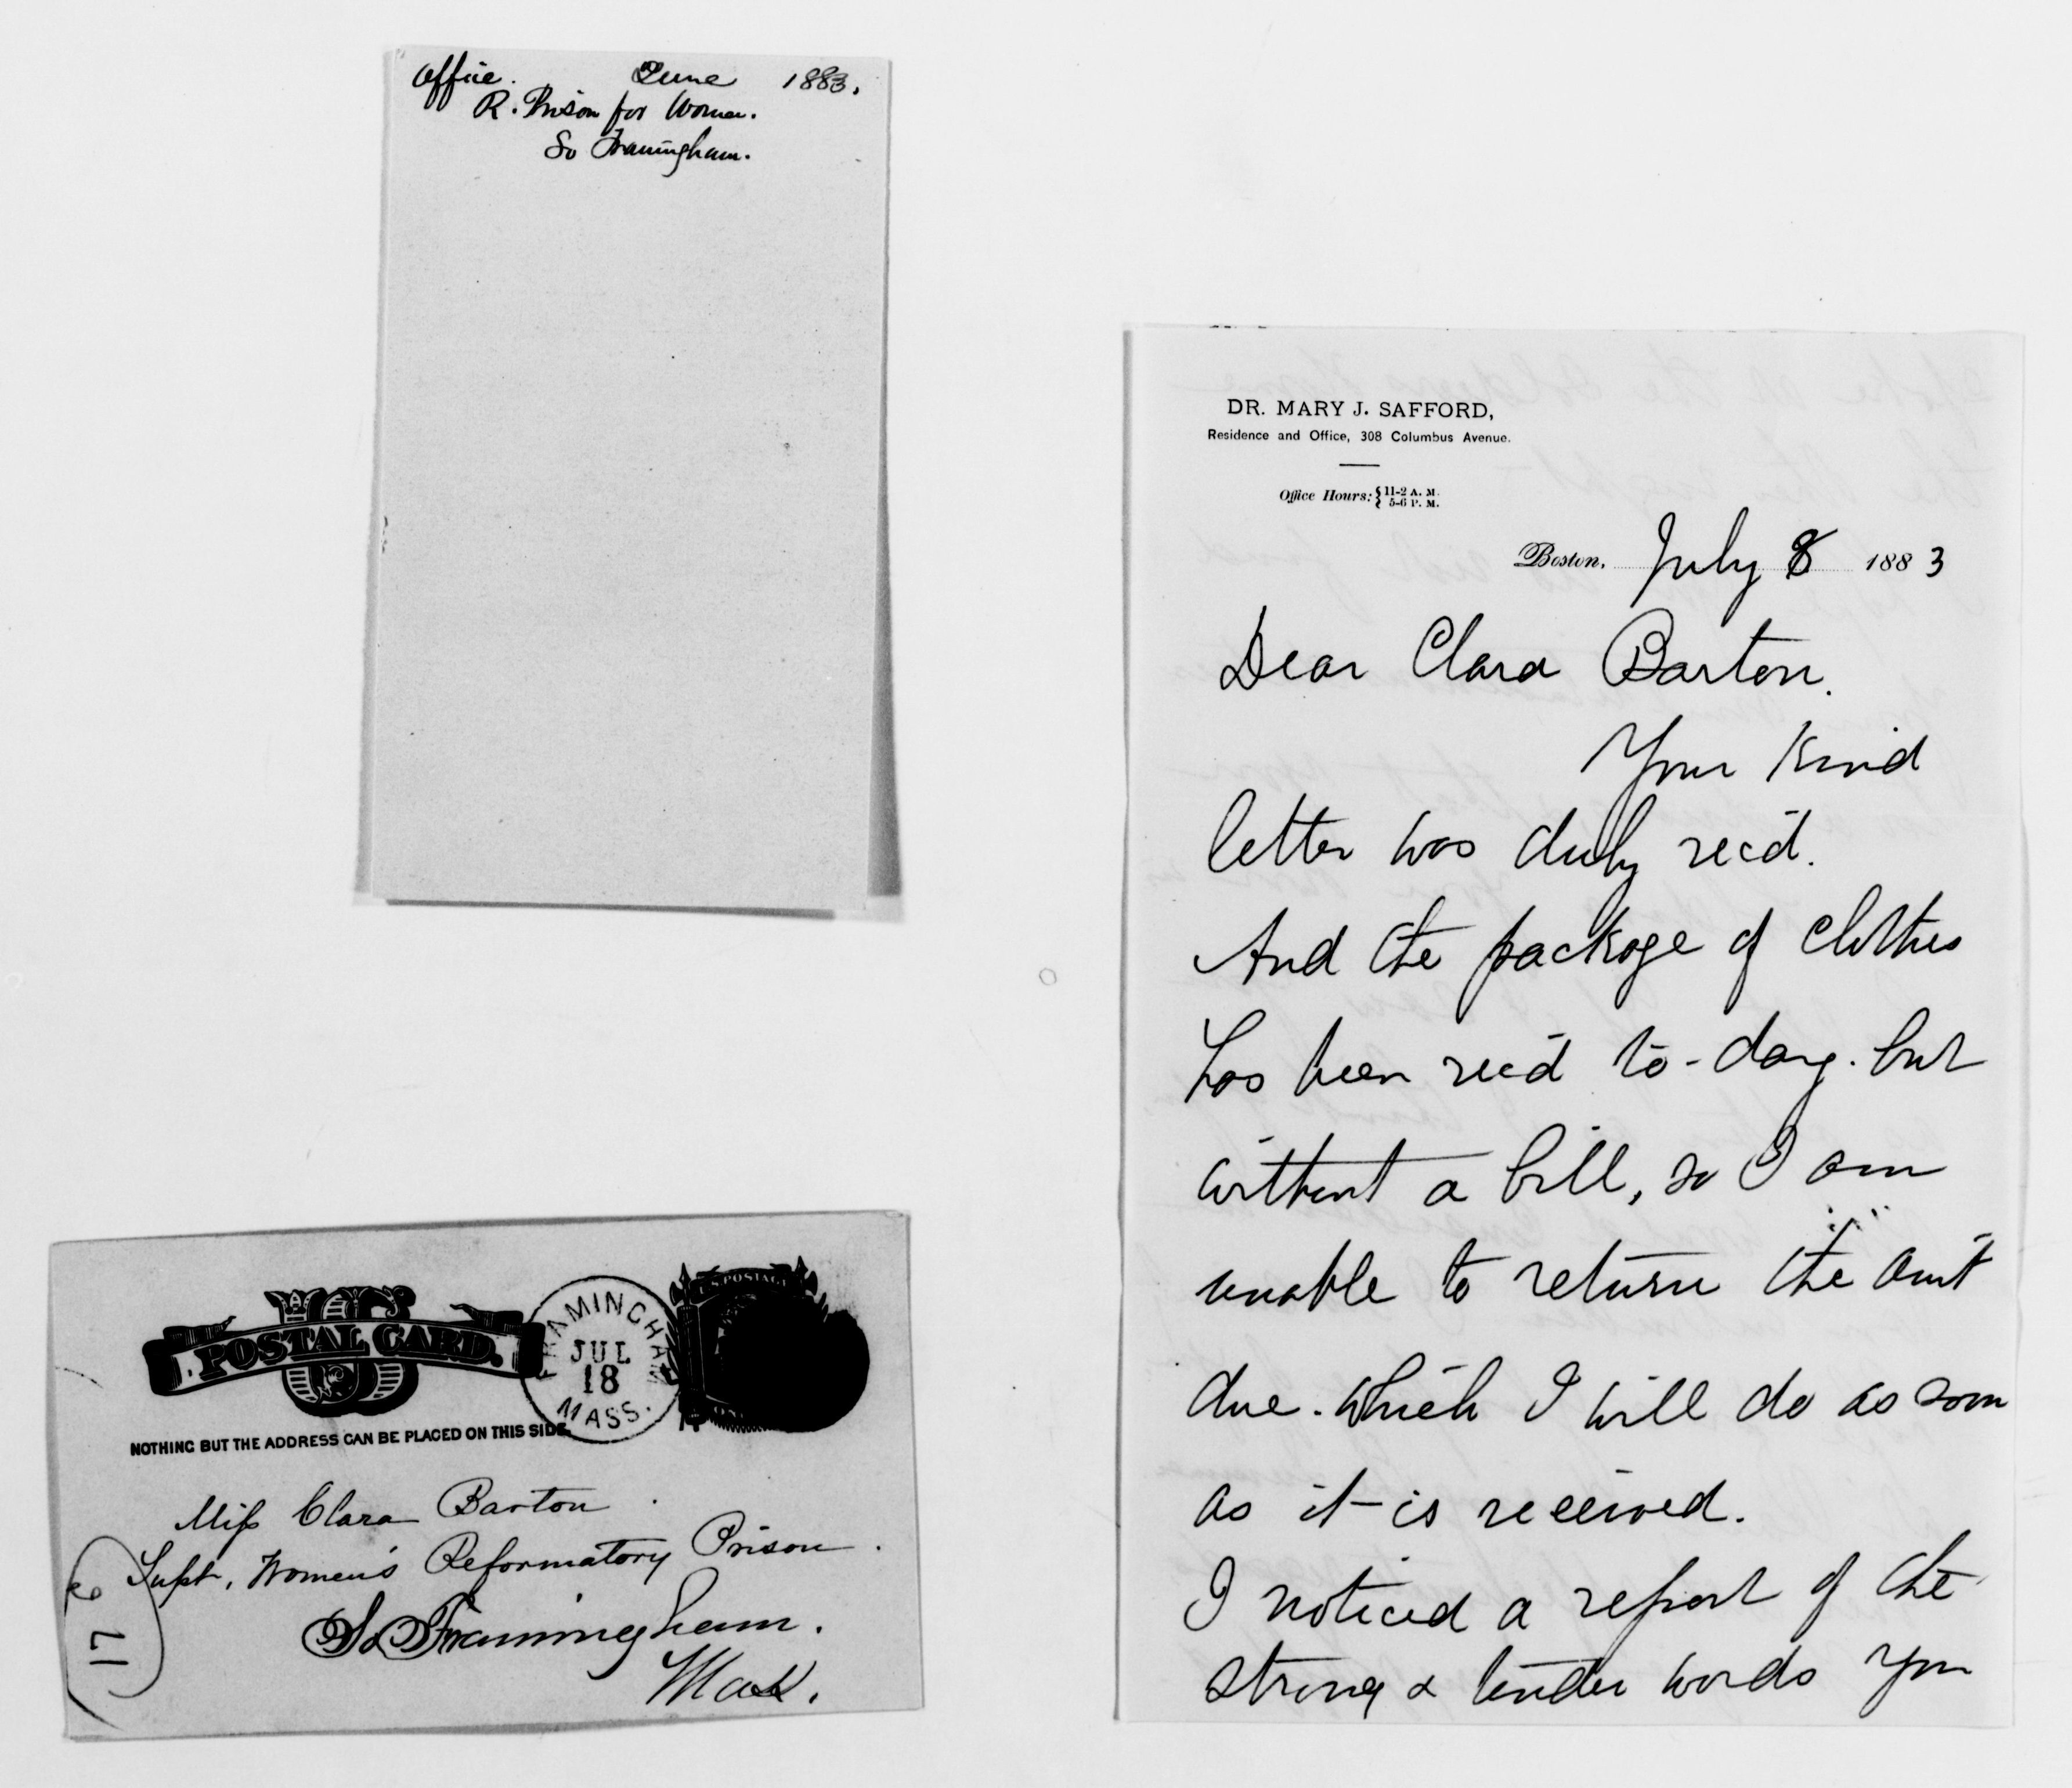 Office. June 1883.
R. Prison for Women.
So Framingham.
POSTAL CARD.
NOTHING BUT THE ADDRESS CAN BE PLACED ON THIS SIDE.
FRAMINGHAM
JUL
18
MASS.
U.S. POSTAGE
ONE
Miss Clara Barton
Supt. Women's Reformatory Prison.
So Framingham.
Mass.
DR. MARY J. SAFFORD,
Residence and Office, 308 Columbus Avenue.
Office Hours: { 11-2 A. M.
5-6 P. M.
Boston, July 8 1883
Dear Clara Barton.
Your kind
letter was duly rec'd.
And the package of clothes
has been rec'd to-day. but
without a bill, so I am
unable to return the amt
due. which I will do as soon
as it is received.
I noticed a report of the
strong & tender words you